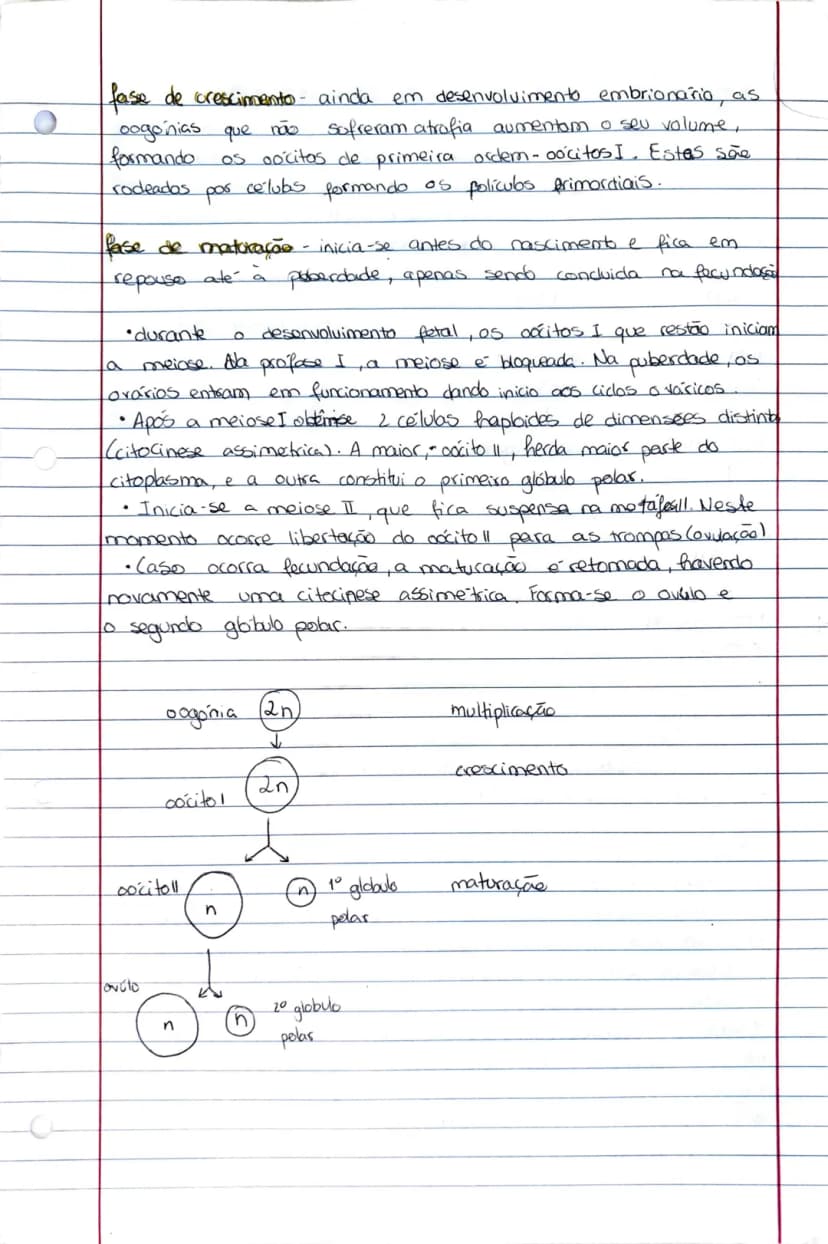 fase de crescimento - ainda em desenvolvimento embrionário, as
oogónias que não sofreram atrofia aumentam o seu volume,
formando os oócitos de primeira ordem - oócitos I. Estas são
rodeados por células formando os folículos primordiais.
fase de maturação - inicia-se antes do nascimento e fica em
repouso até à puberdade, apenas sendo concluida na fecundação
• durante o desenvolvimento fetal, os oócitos I que restão iniciam
a meiose. Na profase I, a meiose é bloqueada. Na puberdade, os
ovários entram em funcionamento dando inicio aos ciclos ováricos.
• Após a meiose I obtêmse 2 células haploides de dimensões distint
(citocinese assimetrica). A maior, - oócito II, herda maior parte do
citoplasma, e a outra constitui o primeiro glóbulo polar.
• Inicia-se a meiose II, que fica suspensa na metáfase II. Neste
momento ocorre libertação do oócito II para as trompas (ovulação)
• Caso ocorra fecundação, a maturação é retomada, havendo
novamente uma citocinese assimétrica. Forma-se o ovúlo e
o segundo globulo polar.
oogónia 2n multiplicação
2n crescimento
oócito I
oócito II n n 1º globulo maturação
polar
ovúlo
n n 2º globulo
polar